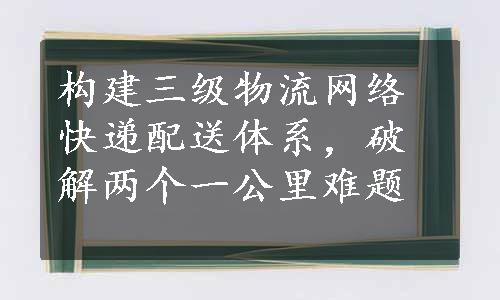 构建三级物流网络
快递配送体系，破
解两个一公里难题